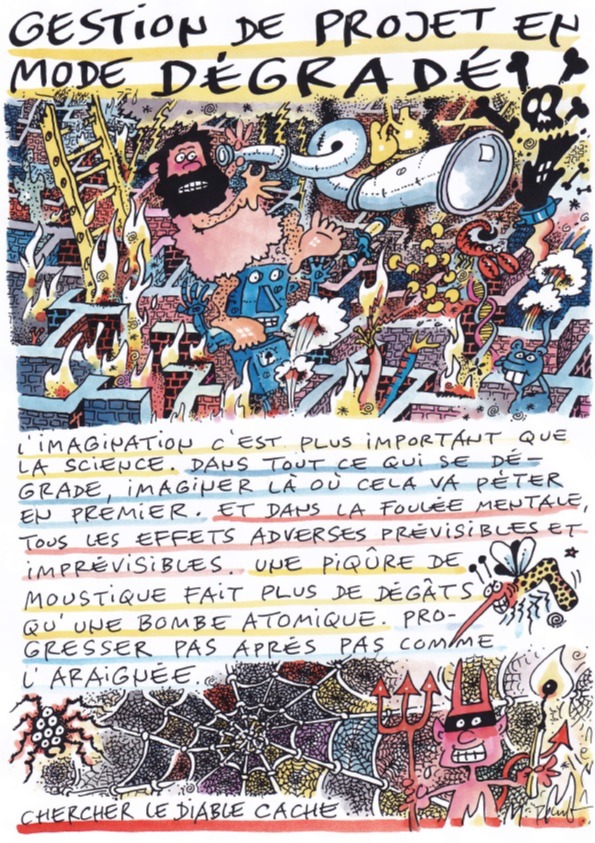 GESTION DE PROJET EN
MODE DÉGRADÉ
L'IMAGINATION C'EST PLUS IMPORTANT QUE
LA SCIENCE. DANS TOUT CE QUI SE DÉ-
GRADE, IMAGINER LÀ OÙ CELA VA PÉTER
EN PREMIER. ET DANS LA FOULÉE MENTALE,
TOUS LES EFFETS ADVERSES PRÉVISIBLES ET
IMPRÉVISIBLES. UNE PIQÛRE DE
MOUSTIQUE FAIT PLUS DE DÉGÂTS
QU'UNE BOMBE ATOMIQUE. PRO-
GRESSER PAS APRÉS PAS COMME
L'ARAIGNÉE.
CHERCHER LE DIABLE CACHÉ.